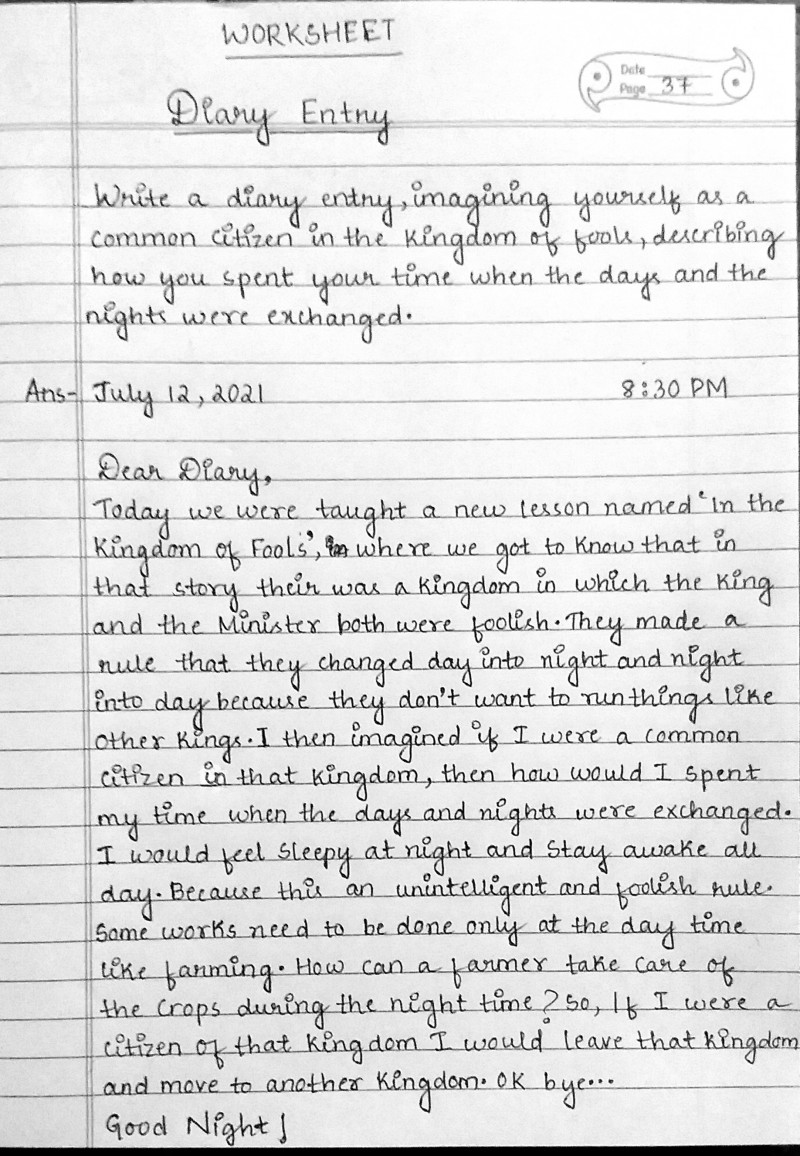 WORKSHEET
Date
Page 37
Diary Entry
Write a diary entry, imagining yourself as a
common citizen in the kingdom of fools, describing
how you spent your time when the days and the
nights were exchanged.
Ans- July 12, 2021 8:30 PM
Dear Diary,
Today we were taught a new lesson named 'In the
Kingdom of Fools', where we got to know that in
that story their was a kingdom in which the King
and the Minister both were foolish. They made a
rule that they changed day into night and night
into day because they don't want to run things like
other kings. I then imagined if I were a common
citizen in that kingdom, then how would I spent
my time when the days and nights were exchanged.
I would feel sleepy at night and stay awake all
day. Because this an unintelligent and foolish rule.
Some works need to be done only at the day time
like farming. How can a farmer take care of
the crops during the night time? So, If I were a
citizen of that kingdom I would leave that kingdom
and move to another kingdom. OK bye...
Good Night!